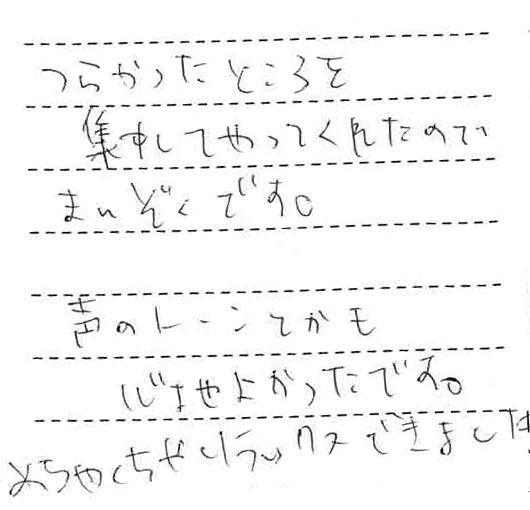 つらかったところを
集中してやってくれたので
まんぞくです。
声のトーンとかも
よかったです。
めちゃくちゃリラックスできました